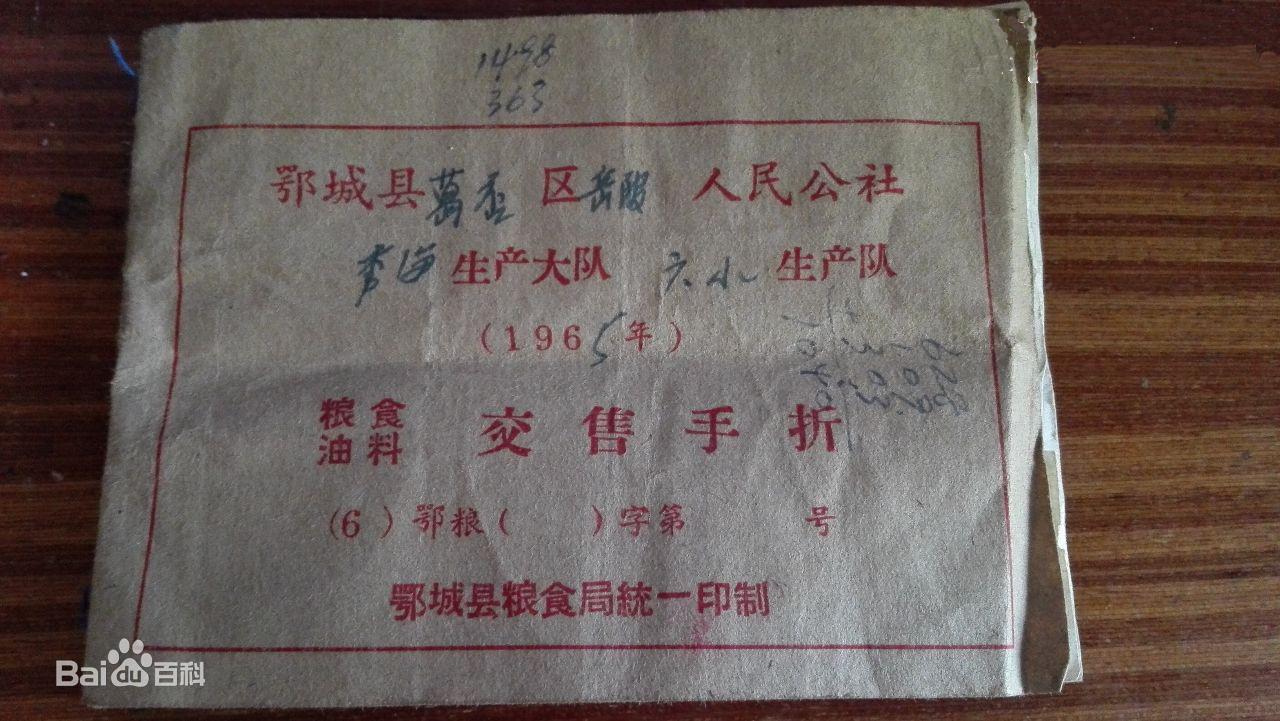 1498
363
鄂城县葛店区 人民公社
生产大队 六小 生产队
(1965年)
粮食
油料 交售手折
(6 )鄂粮( )字第 号
鄂城县粮食局統一印制
Bai du 百科